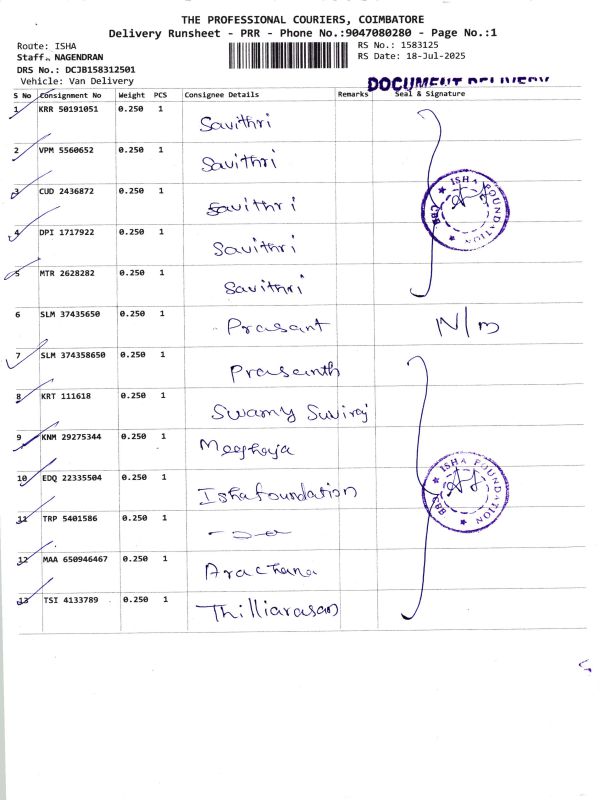 THE PROFESSIONAL COURIERS, COIMBATORE
Delivery Runsheet - PRR - Phone No.:9047080280 - Page No.:1
Route: ISHA
RS No.: 1583125
Staff. NAGENDRAN
RS Date: 18-Jul-2025
DRS No.: DCJB158312501
Vehicle: Van Delivery
DOCUMENT DELIVERY
S No Consignment No Weight PCS Consignee Details Remarks Seal & Signature
1 KRR 50191051 0.250 1 Savithri
2 VPM 5560652 0.250 1 Savithri
3 CUD 2436872 0.250 1 Savithri
4 DPI 1717922 0.250 1 Savithri
5 MTR 2628282 0.250 1 Savithri
ISHA FOUNDATION CBB
6 SLM 37435650 0.250 1 Prasant N/m
7 SLM 374358650 0.250 1 Prasanth
8 KRT 111618 0.250 1 Swamy Suviraj
9 KNM 29275344 0.250 1
10 EDQ 22335504 0.250 1 Ishafoundation
11 TRP 5401586 0.250 1
12 MAA 650946467 0.250 1 Arachana
13 TSI 4133789 0.250 1 Thilliarasan
ISHA FOUNDATION CBB